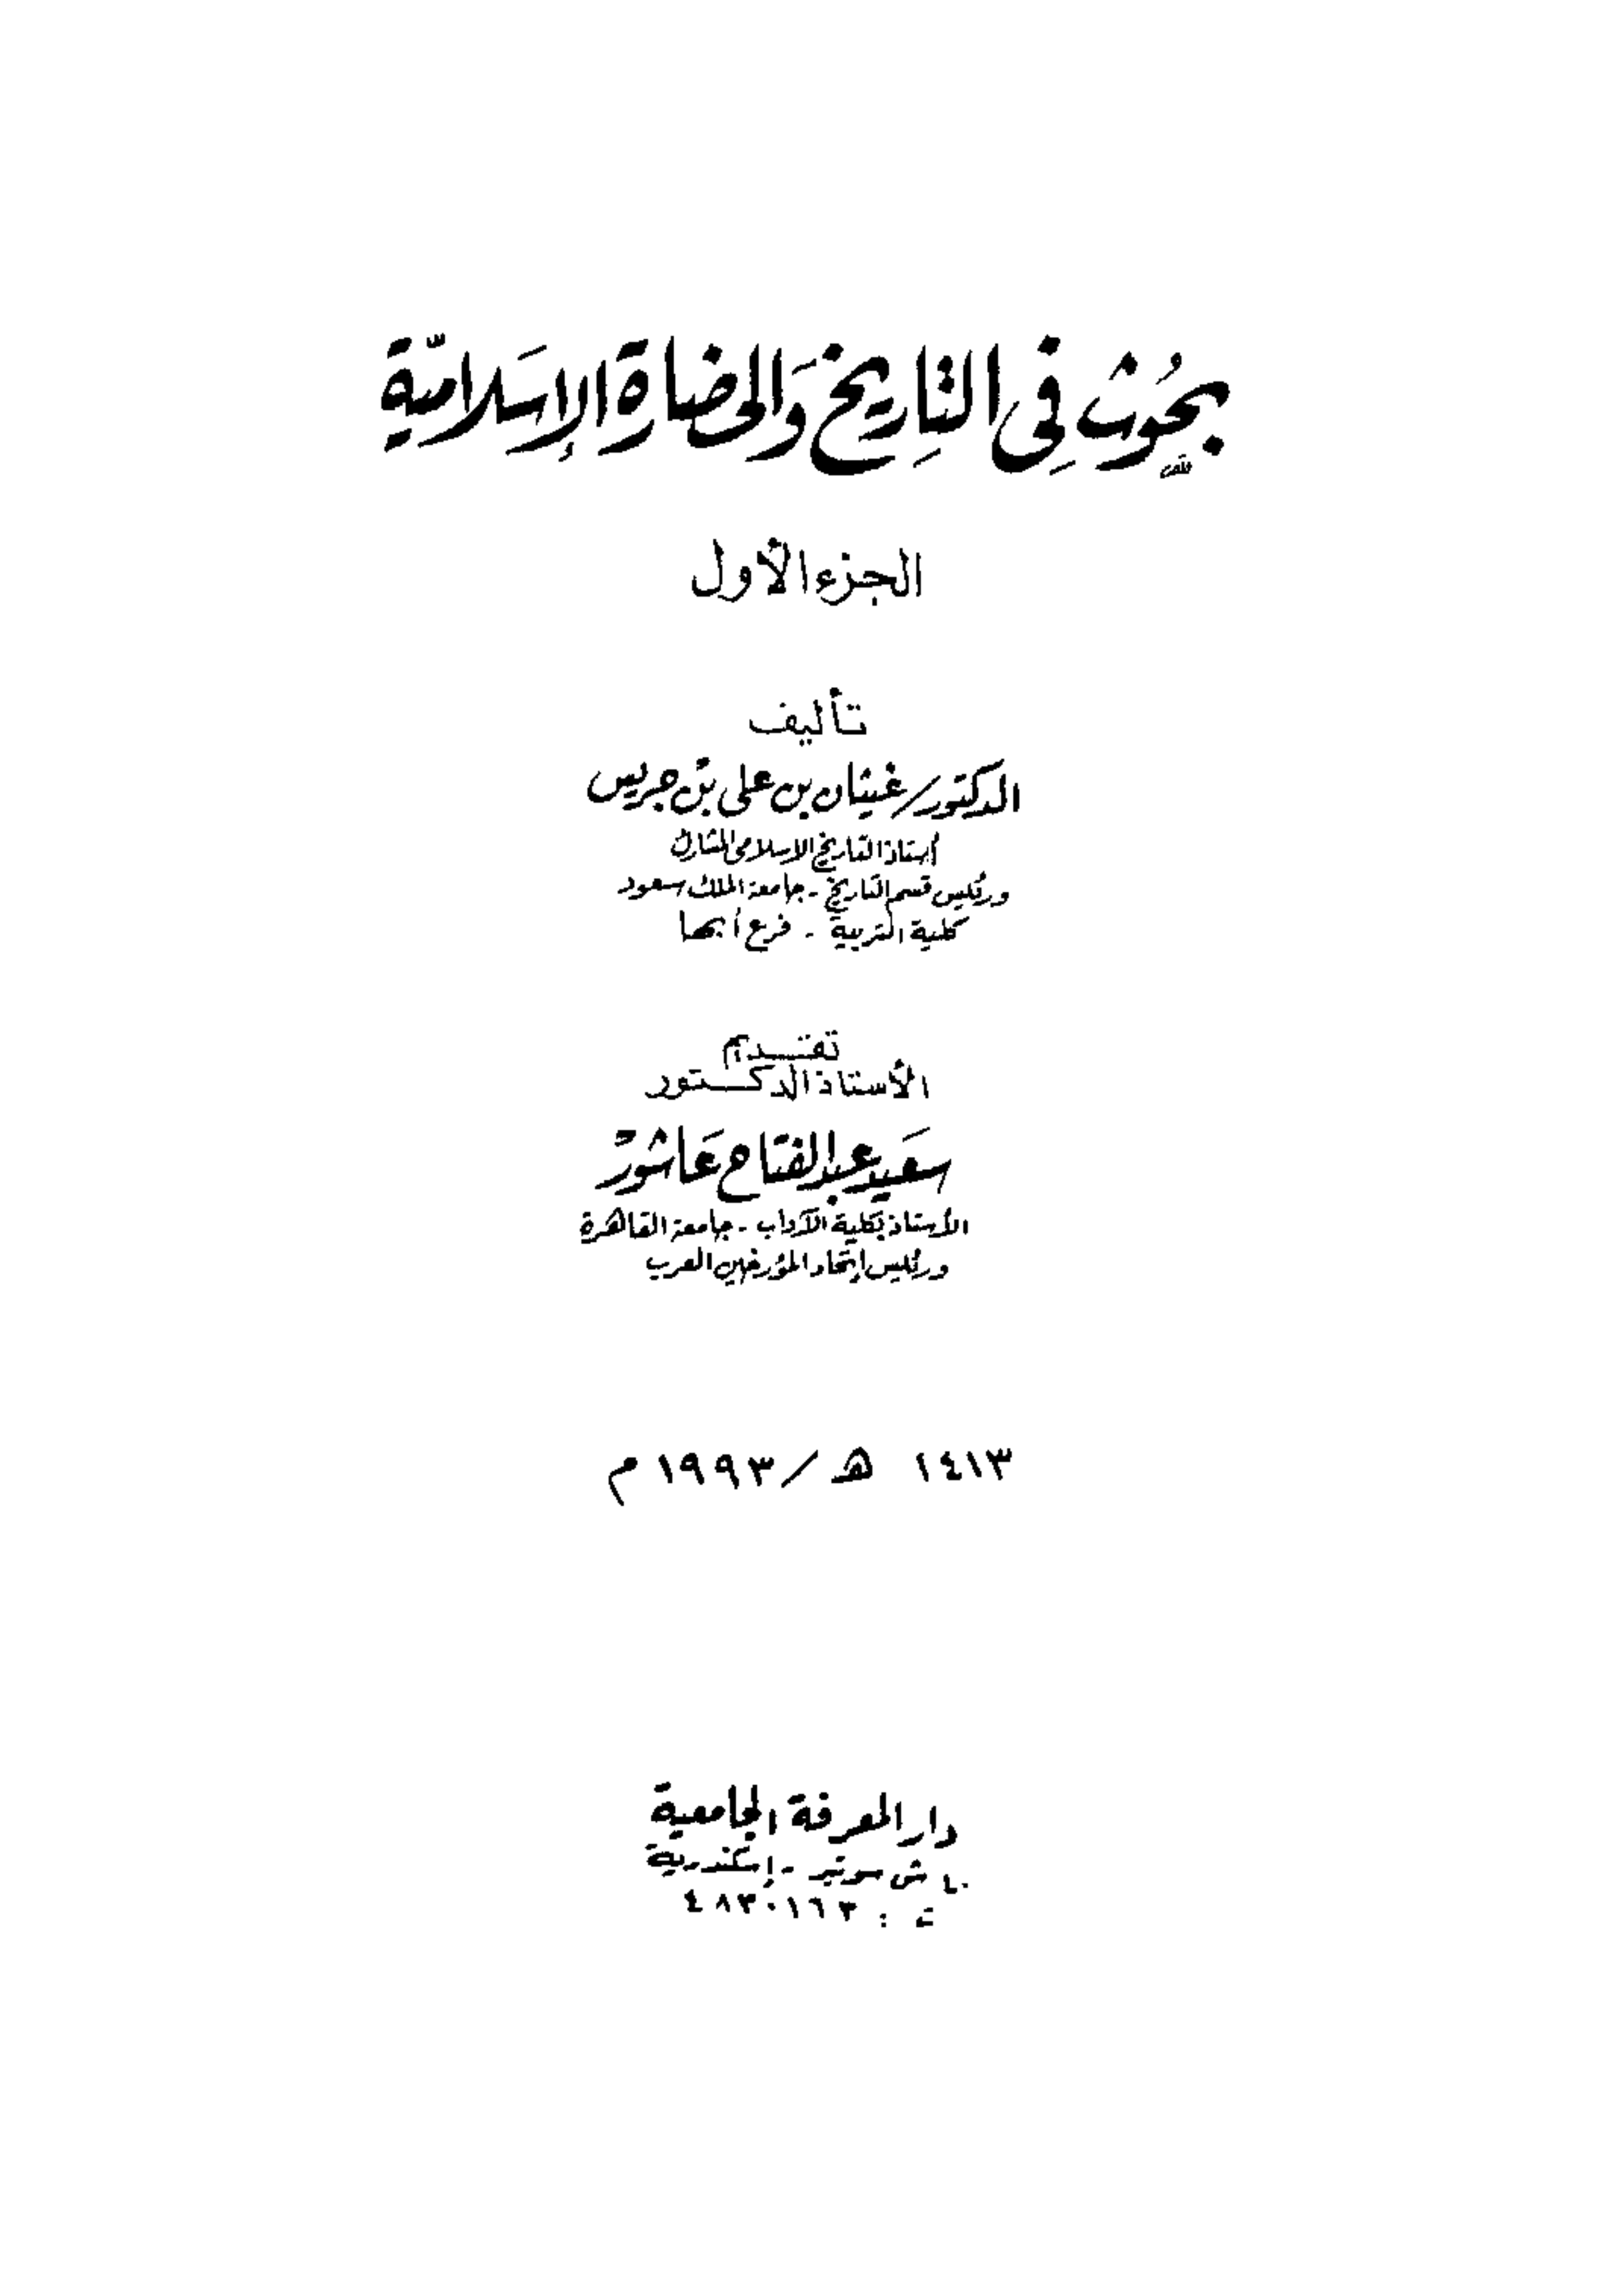 بحُوث فِي التاِريخ وَالحضارة الإِسَلاميّة
الجزء الأول
تأليف
الدكتور/ غيثان بن على بن جريس
أستاذ التاريخ الاسلامى المشارك
ورئيس قسم التاريخ - جامعة الملك سعود
كلية التربية - فرع أبها
تقديم
الأستاذ الدكتور
سَعيد عبد الفتاح عَاشور
الأستاذ بكلية الآداب - جامعة القاهرة
ورئيس إتحاد المؤرخين العرب
١٤١٣ هـ / ١٩٩٣ م
دار المعرفة الجامعية
٤٠ ش سوتير - إسكندرية
ت : ٤٨٣٠١٦٣